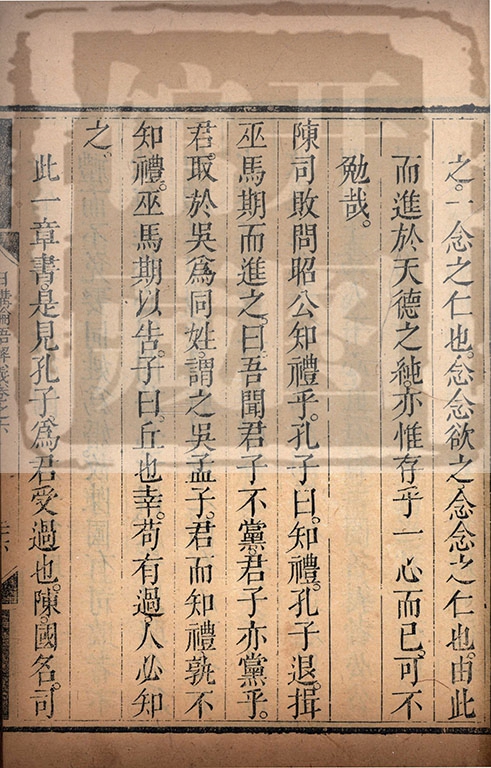 之。一念之仁也。念念欲之。念念之仁也。由此
而進於天德之純。亦惟存乎一心而已。可不
勉哉。
陳司敗問昭公知禮乎。孔子曰。知禮。孔子退。揖
巫馬期而進之。曰。吾聞君子不黨。君子亦黨乎。
君取於吳。爲同姓。謂之吳孟子。君而知禮。孰不
知禮。巫馬期以告。子曰。丘也幸。苟有過。人必知
之。
此一章書。是見孔子爲君受過也。陳。國名。司
日講論語解義卷之六